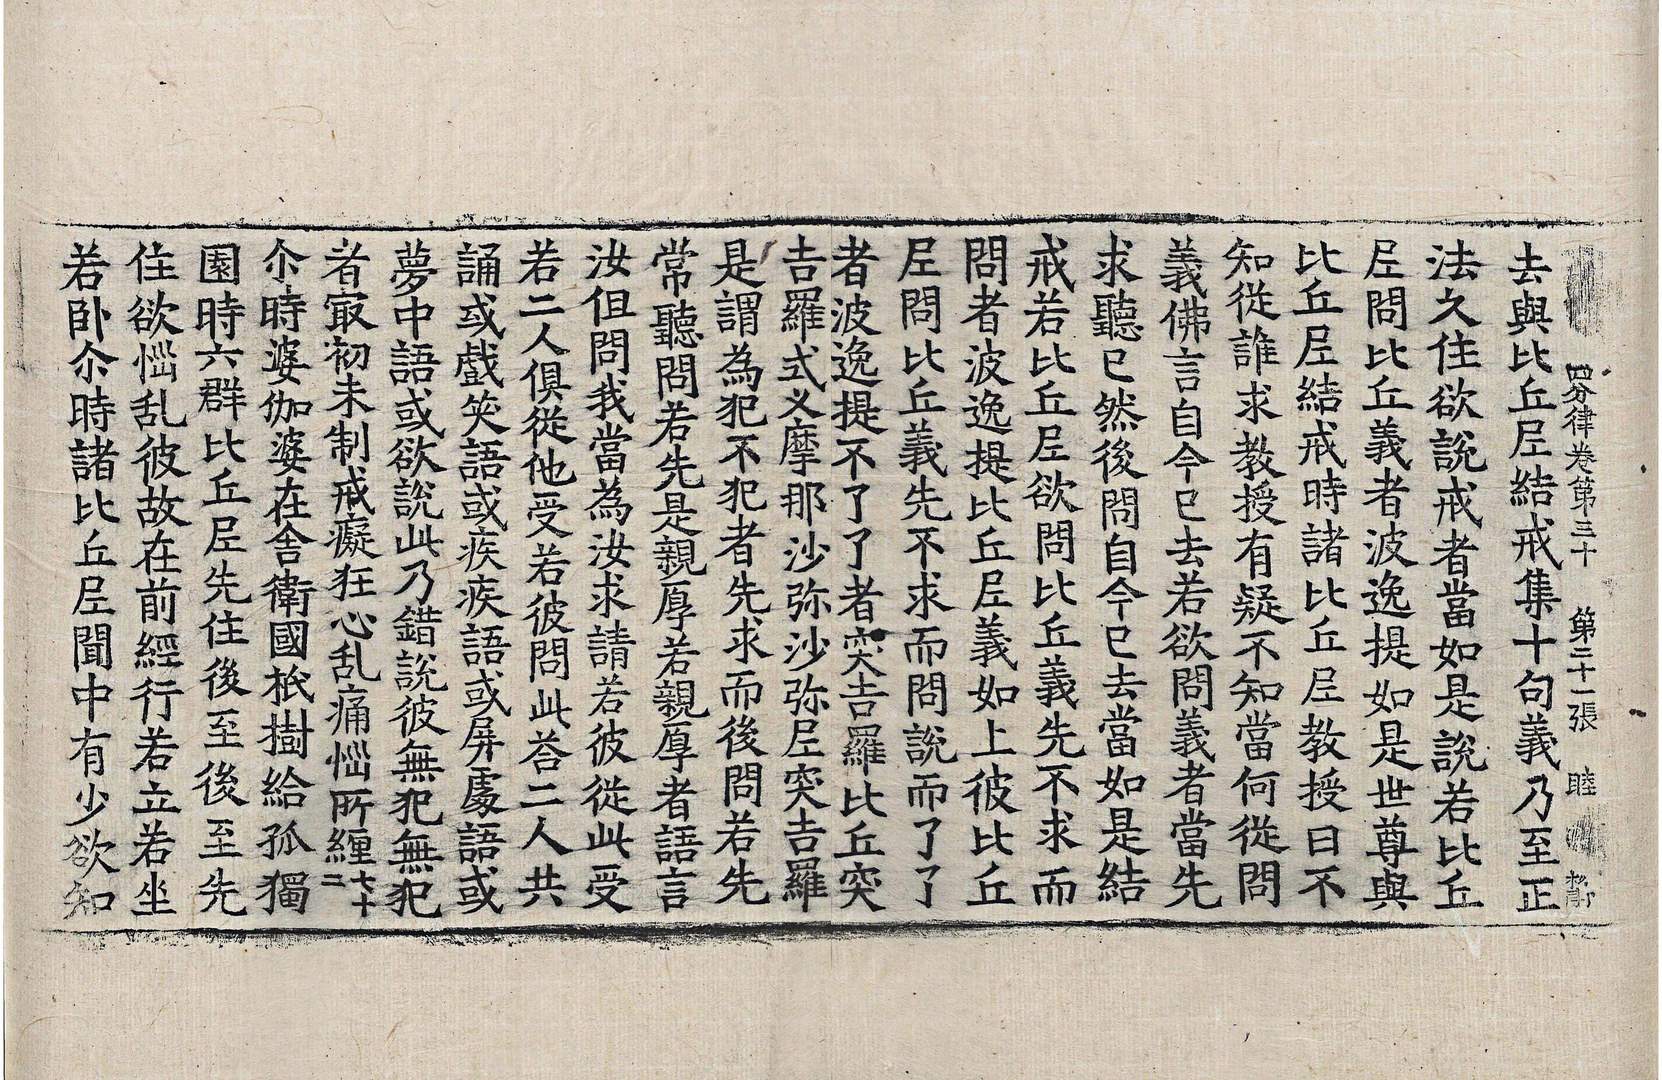 四分律卷第三十　第二十一張　睦
去與比丘尼結戒集十句義乃至正
法久住欲說戒者當如是說若比丘
尼問比丘義者波逸提如是世尊與
比丘尼結戒時諸比丘尼教授日不
知從誰求教授有疑不知當何從問
義佛言自今已去若欲問義者當先
求聽已然後問自今已去當如是結
戒若比丘尼欲問比丘義先不求而
問者波逸提比丘尼義如上彼比丘
尼問比丘義先不求而問說而了了
者波逸提不了了者突吉羅比丘突
吉羅式叉摩那沙弥沙弥尼突吉羅
是謂為犯不犯者先求而後問若先
常聽問若先是親厚若親厚者語言
汝但問我當為汝求請若彼從此受
若二人俱從他受若彼問此荅二人共
誦或戲笑語或疾疾語或屏處語或
夢中語或欲說此乃錯說彼無犯無犯
者寂初未制戒癡狂心乱痛惱所纏七十二
尒時婆伽婆在舍衛國祇樹給孤獨
園時六群比丘尼先住後至後至先
住欲惱乱彼故在前經行若立若坐
若卧尒時諸比丘尼聞中有少欲知